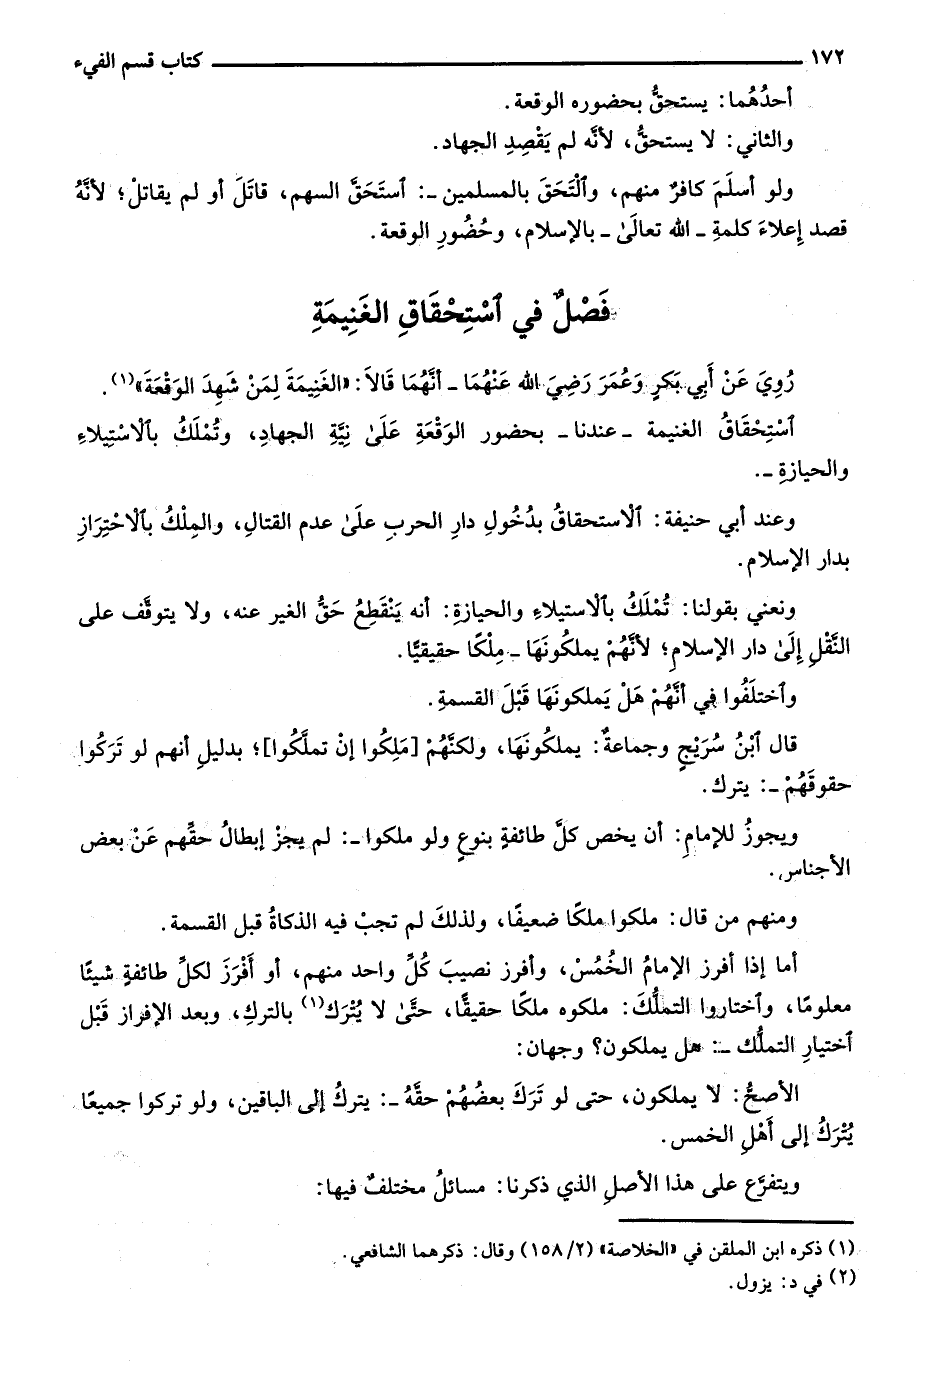 ١٧٢ كتاب قسم الفيء
أحدُهُما: يستحقُّ بحضوره الوقعة.
والثاني: لا يستحقُّ، لأنَّه لم يَقْصِدِ الجهاد.
ولو أسلَمَ كافرٌ منهم، وٱلْتَحَقَ بالمسلمين ـ: ٱستَحَقَّ السهم، قاتَلَ أو لم يقاتلْ؛ لأنَّهُ
قصد إعلاءَ كلمةِ ـ الله تعالَىٰ ـ بالإسلام، وحُضُورِ الوقعة.
فَصْلٌ في ٱسْتِحْقَاقِ الغَنِيمَةِ
رُوِيَ عَنْ أَبِي بَكرٍ وَعُمَرَ رَضِيَ الله عَنْهُمَا ـ أنَّهُمَا قَالاَ: «الغَنِيمَةَ لِمَنْ شَهِدَ الوَقْعَةَ»(١).
ٱسْتِحْقَاقُ الغنيمة ـ عندنا ـ بحضور الوَقْعَةِ عَلَىٰ نِيَّةِ الجهادِ، وتُمْلَكُ بٱلاْسْتِيلاءِ
والحيازةِ ـ.
وعند أبي حنيفة: ٱلاْستحقاقُ بدُخُولِ دارِ الحربِ علَىٰ عدم القتالِ، والمِلْكُ بٱلاْحْتِرَازِ
بدار الإسلام.
ونعني بقولنا: تُمْلَكُ بٱلاْستيلاءِ والحيازةِ: أنه يَنْقَطِعُ حَقُّ الغير عنه، ولا يتوقَّف على
النَّقْلِ إِلَىٰ دار الإسلامِ؛ لأنَّهُمْ يملكونَهَا ـ مِلْكًا حقيقيًّا.
وٱختلَفُوا فِي أنَّهُمْ هَلْ يَملكونَهَا قَبْلَ القسمةِ.
قال ٱبْنُ سُرَيْجٍ وجماعةٌ: يملكُونَهَا، ولكنَّهُمْ [مَلِكُوا إنْ تملَّكُوا]؛ بدليلِ أنهم لو تَرَكُوا
حقوقَهُمْ ـ: يترك.
ويجوزُ للإمامِ: أن يخص كلَّ طائفةٍ بنوعٍ ولو ملكوا ـ: لم يجزْ إبطالُ حقِّهم عَنْ بعض
الأجناس.
ومنهم من قال: ملكوا ملكًا ضعيفًا، ولذلكَ لم تجبْ فيه الذكاةُ قبل القسمة.
أما إذا أفرز الإمامُ الخُمُسْ، وأفرز نصيبَ كُلِّ واحد منهم، أو أَفْرَزَ لكلِّ طائفةٍ شيئًا
معلومًا، وٱختاروا التملُّكَ: ملكوه ملكًا حقيقًّا، حتَّىٰ لا يُتْرَك(١) بالتركِ، وبعد الإفراز قَبْل
ٱختيارِ التملُّك ـ: هل يملكون؟ وجهان:
الأصحُّ: لا يملكون، حتى لو تَرَكَ بعضُهُمْ حقَّهُ ـ: يتركُ إلى الباقين، ولو تركوا جميعًا
يُتْرَكُ إلى أَهْلِ الخمس.
ويتفرَّع على هذا الأصلِ الذي ذكرنا: مسائلُ مختلفٌ فيها:
(١) ذكره ابن الملقن في «الخلاصة» (١٥٨/٢) وقال: ذكرهما الشافعي.
(٢) في د: يزول.